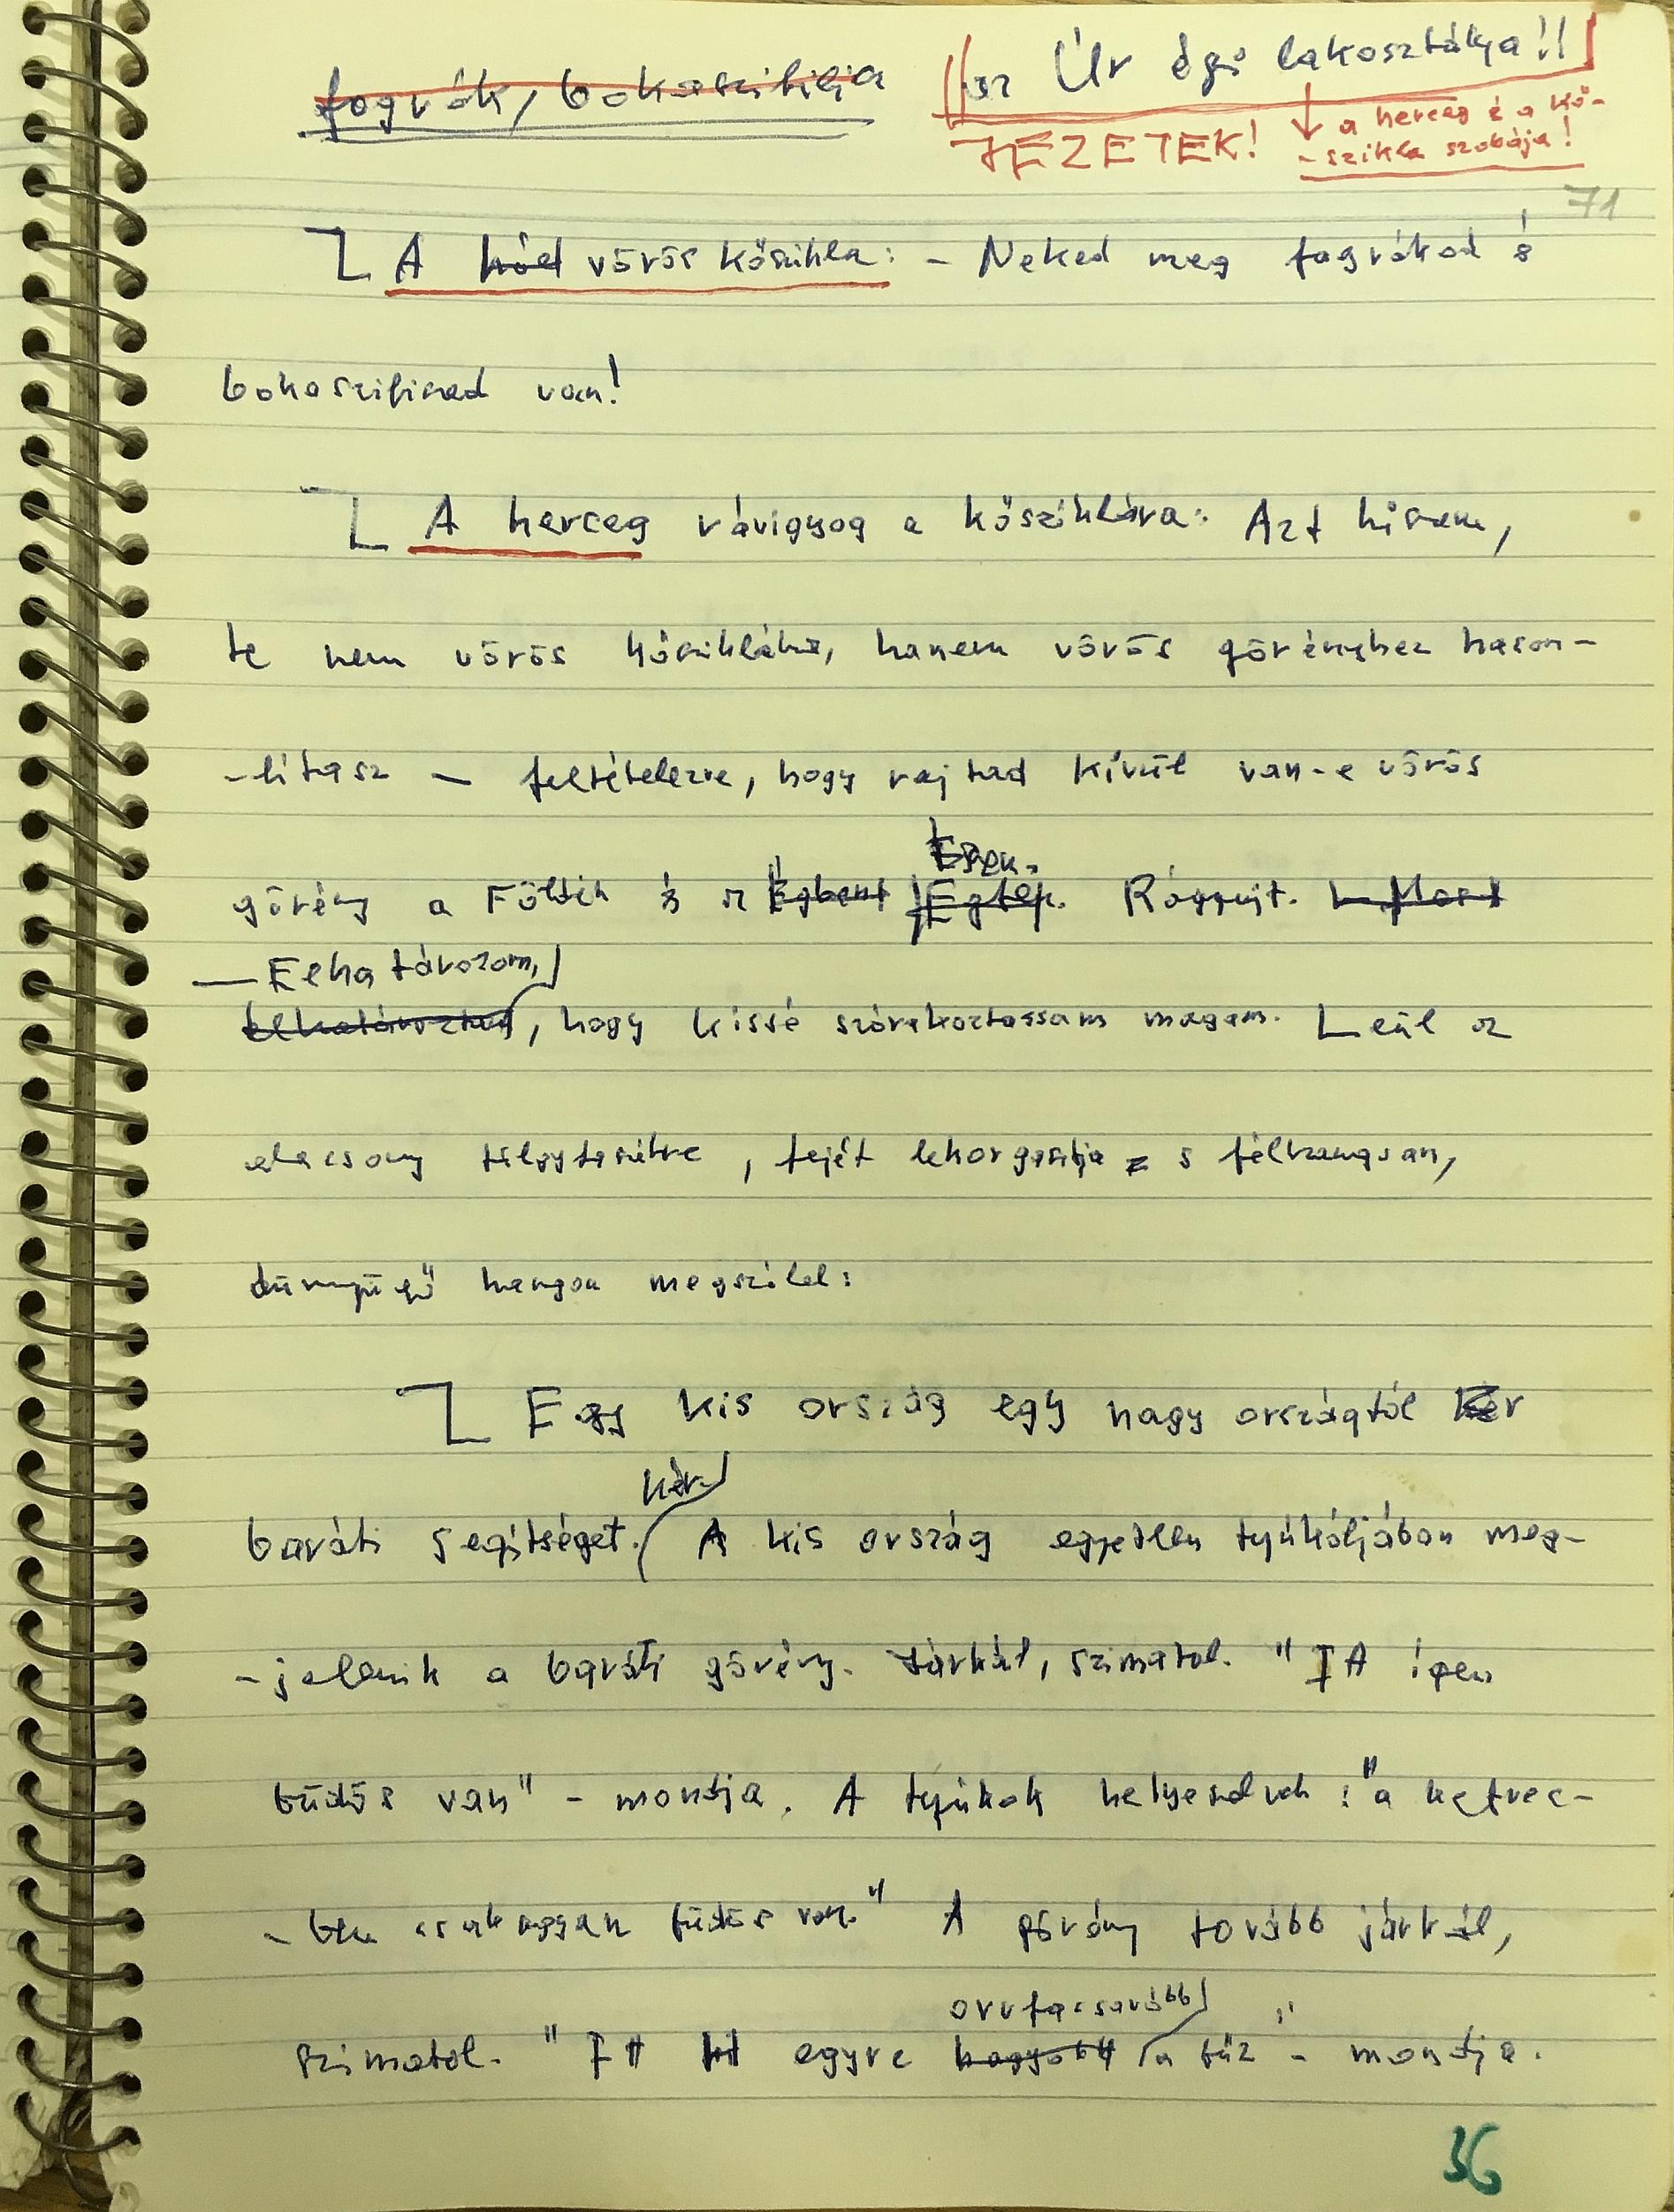 fográk, bokaszifilisza
az Úr égi lakosztálya!!
FÉZETEK! ↓ a herceg é a kő-
-szikla szobája!
71
A hód vörös kőszikla: – Neked meg fográkod és
bokaszifiliszed van!
A herceg rávigyog a kősziklára: Azt hiszem,
te nem vörös kősziklához, hanem vörös görényhez hason-
-lítasz – feltételezve, hogy rajtad kívül van-e vörös
Égen.
görény a Földön és az Égbent Égtep. Rágyujt. – Most
— Elhatározom,
elhatároztam, hogy kissé szórakoztassam magam. Leül az
alacsony, fejét lehorgasztja s félhangosan,
dünnyögő hangon megszólal:
Egy kis ország egy nagy országtól kér
kér
baráti segítséget. A kis ország egyetlen tyúkóljában meg-
-jelenik a baráti görény. Járkál, szimatol. "ITT ípen
büdös van" – mondja. A tyúkok helyeselnek: "a ketrec-
-ben csakugyan büdös van." A görény tovább járkál,
orrfacsaróbb
szimatol. "Itt egyre nagyobb a bűz" – mondja.
36